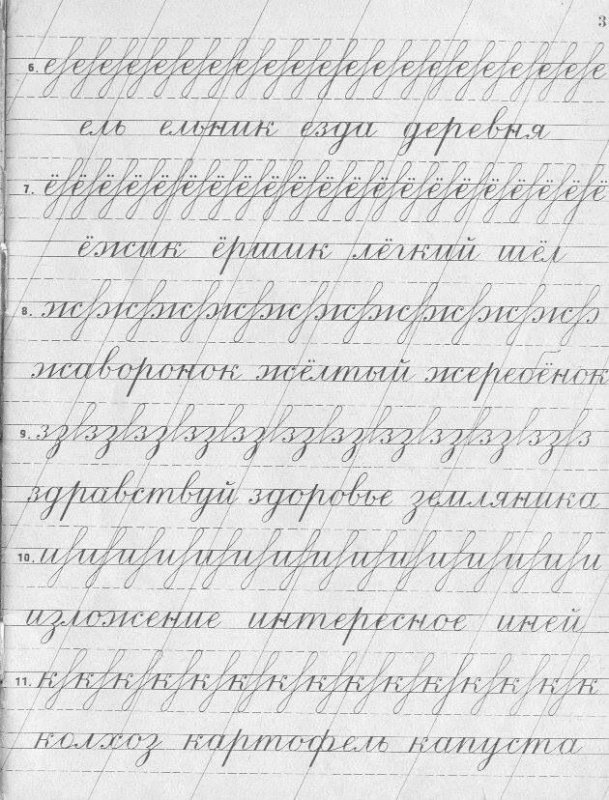 3
6. е е е е е е е е е е е е е е е е е е е е е
ель ельник езда деревня
7. ё ё ё ё ё ё ё ё ё ё ё ё ё ё ё ё ё ё ё ё ё
ёжик ёршик лёгкий шёл
8. ж ж ж ж ж ж ж ж ж ж
жаворонок жёлтый жеребёнок
9. з з з з з з з з з з з з
здравствуй здоровье земляника
10. и и и и и и и и и и и и и и и
изложение интересное иней
11. к к к к к к к к к к к к к к к
колхоз картофель капуста